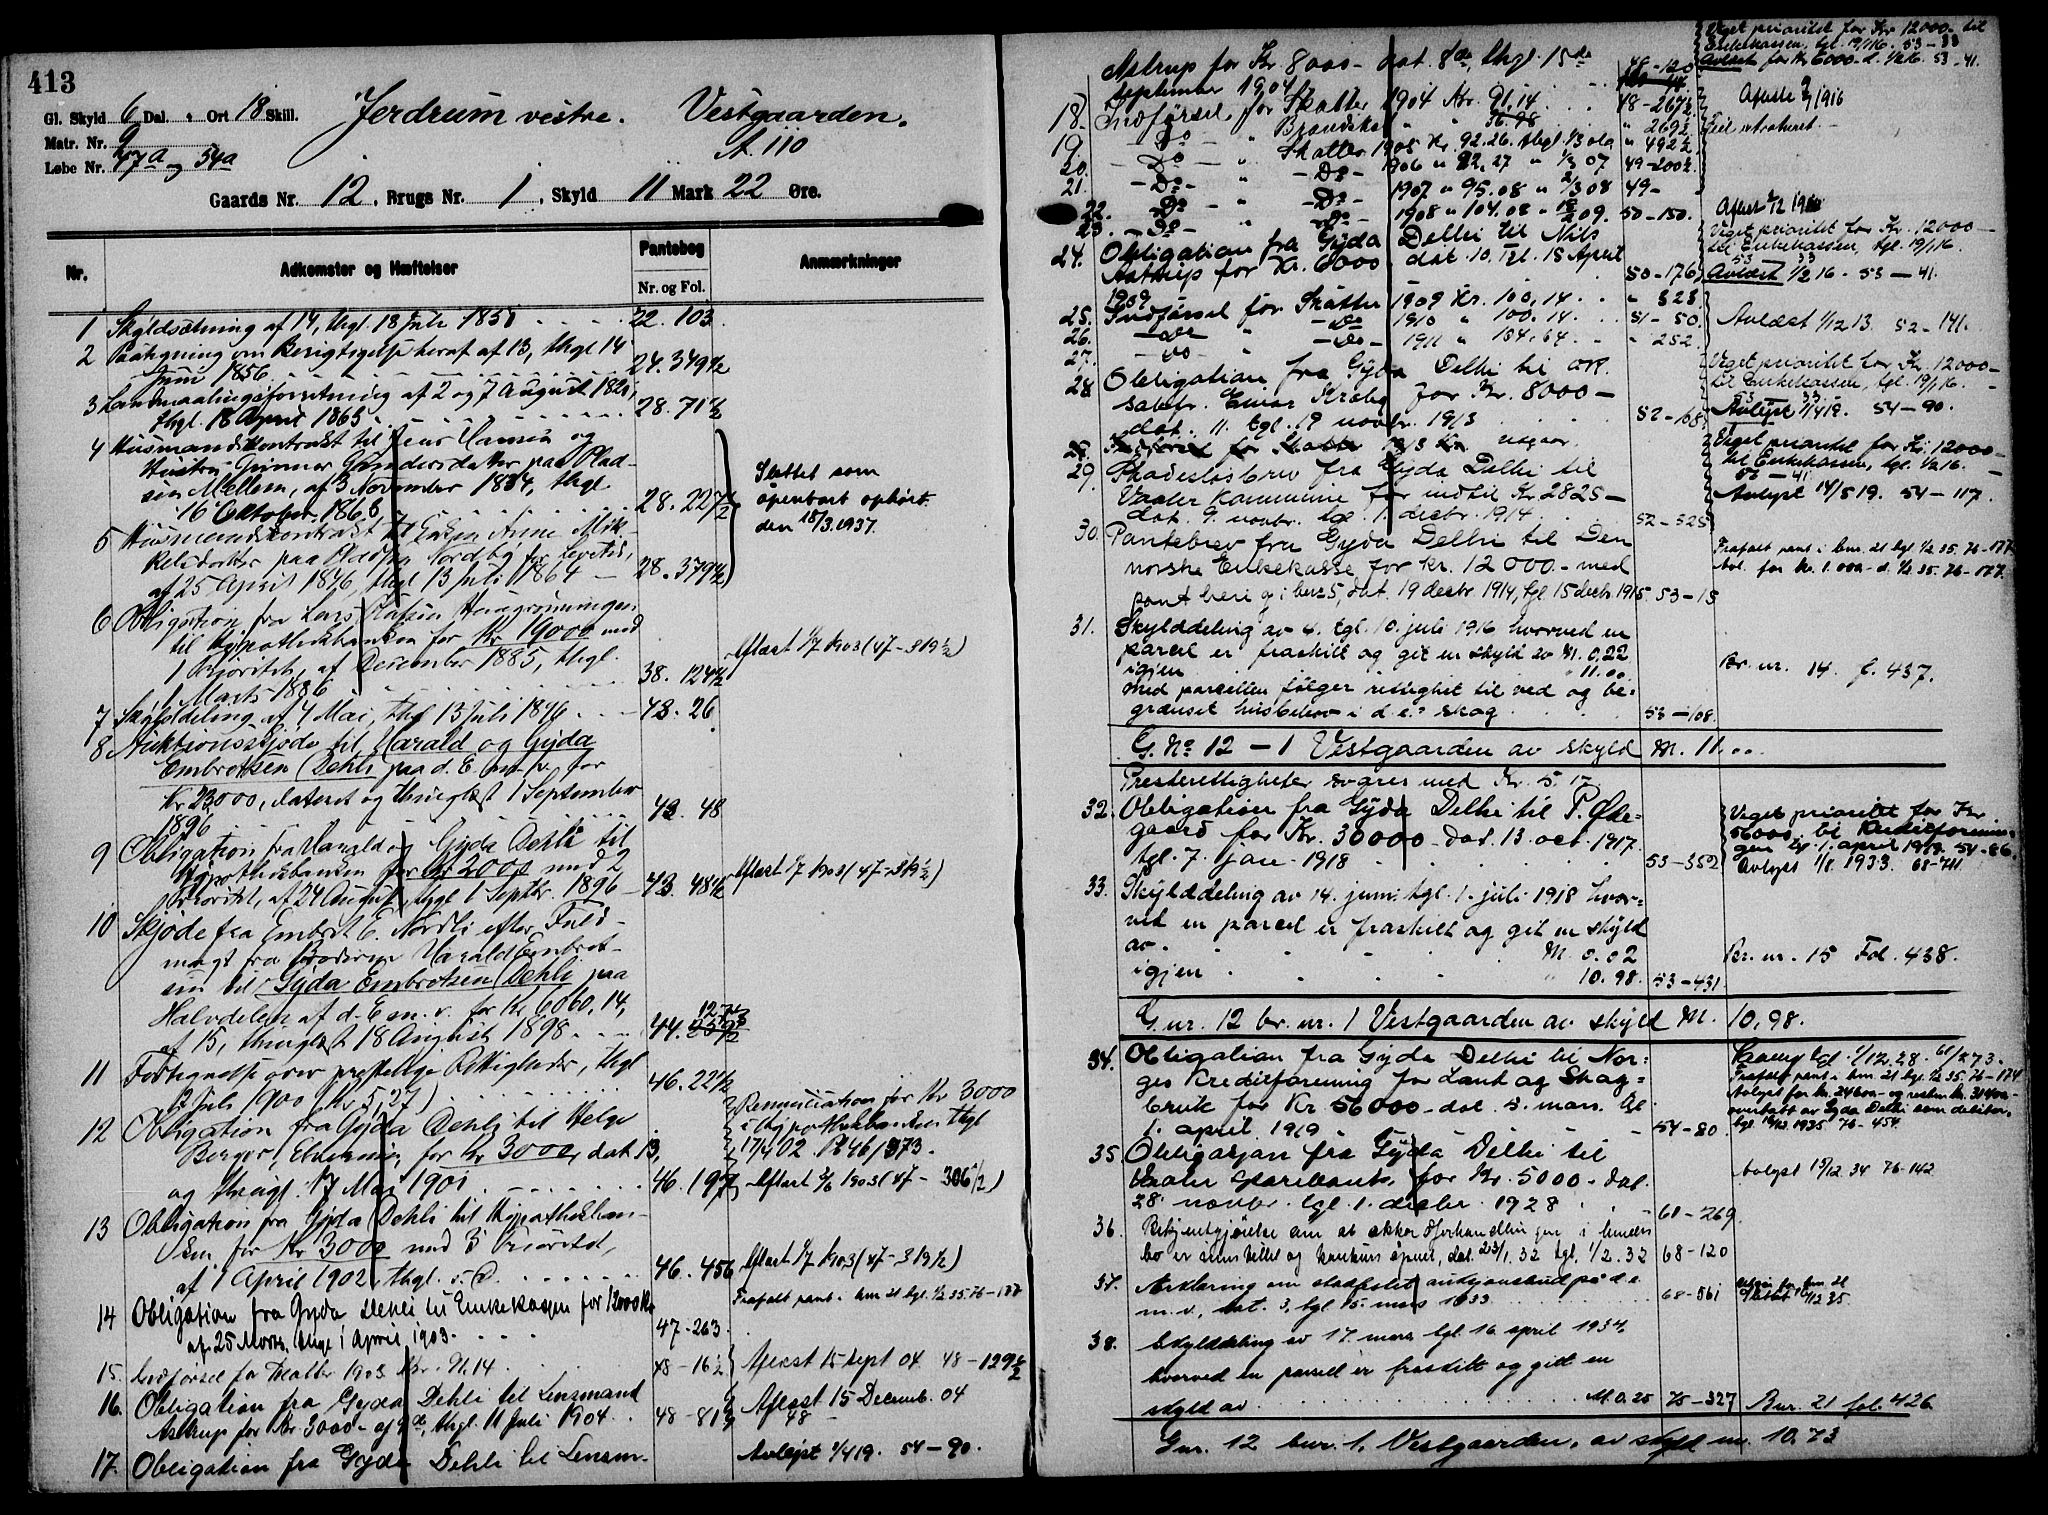 413
Gl. Skyld 6 Dal. " Ort 18 Skill.
Jerdrum vestre. Vestgaarden.
Matr. Nr. 9
A. 110
Løbe Nr. 47a og 54a
Gaards Nr. 12, Brugs Nr. 1, Skyld 11 Mark 22 Øre.
Nr. Adkomster og Hæftelser Pantebog Anmærkninger
Nr. og Fol.
1 Skyldsætning af 14, thgl. 18 Juli 1851 22. 103
2 Paategning om Berigtigelse heraf af 13, thgl. 14
Juni 1856 24. 349½
3 af 2 og 7 August 182
thgl. 18 April 1863 28. 71½
4 Husmandskontrakt til Jens Hansen og
Hustru Gunnor Gundersdatter paa Plad-
sen Mellem, af 3 November 1834, thgl.
16 Oktober 1863 28. 227½
Slettet som
åpenbart ophørt
den 18/3.1937.
5 Husmandskontrakt til Enken Anne Mik-
kelsdatter paa Pladsen Nordby for Levetid,
af 25 April 1846, thgl. 13 Juli 1864 28. 379½
6 Obligation fra Lars Olafsen
til Hypothekbanken for Kr. 19000 med
1 Prioritet, af December 1885, thgl.
1 Marts 1886 38. 124½
Aflæst 1/7 1903 (47-319½)
7 Skylddeling af 4 Mai, thgl. 13 Juli 1896 43. 26
8 Auktionsskjøde til Harald og Gyda
Embretsen Dehli paa d. E. m. v. for
Kr. 23000, dateret og thinglæst 1 September
1896 43. 48
9 Obligation fra Harald og Gyda Dehli til
Hypothekbanken for Kr. 2000 med 2
Prioritet, af 24 August, thgl. 1 Septbr. 1896 43. 48½
Aflæst 1/7 1903 (47-319½)
10 Skjøde fra Embret E. Nordli efter Fuld-
magt fra Broderen Harald Embret-
sen til Gyda Embretsen Dehli paa
Halvdelen af d. E. m. v. for Kr. 6060,14,
af 15, thinglæst 18 August 1898 44.
11 Fortegnelse over prestelige Rettigheder, thgl
2 Juli 1900 (Kr. 5,27) 46. 22½
12 Obligation fra Gyda Dehli til Helge
Berger, Elverum, for Kr. 3000, dat. 13,
og thingl. 17 Mai 1901 46. 197
Renunciation for Kr. 3000
i Hypothekbanken thgl
17/4 02 Pb 46/573.
Aflæst 2/6 1903 (47-306½)
13 Obligation fra Gyda Dehli til Hypothekban-
ken for Kr. 3000 med 3 Prioritet,
af 1 April 1902, thgl. s. D. 46. 456
Aflæst 1/7 1903 (47-319½)
14 Obligation fra Gyda Dehli til Enkekassen for 12000 Kr
af 25 Marts, thgl. 1 April 1903 47-263
Frafalt pant i bnr. 21 tgl. ½ 35. 76-177
15. Indførsel for Skatter 1903 Kr. 91.14 48-16½
Aflæst 15 Sept 04 48-129½
16. Obligation fra Gyda Dehli til Lensmand
Astrup for Kr. 3000- af 9de, thgl. 11 Juli 1904 48-81½
Aflæst 15 Decemb. 04
48-
17. Obligation fra Gyda Dehli til Lensm.
Avlyst 1/4 19. 54-90.
Astrup for Kr. 8000- dat. 8de, thgl. 15de
September 1904 48-120
Veget prioritet for Kr 12000- til
Enkekassen, tgl. 19/1 16. 53-33
Avlæst for Kr 6000- d. ½ 16. 53-41.
18. Indførsel for Skatter 1904 Kr. 91,14 48-267½
" Brandsk. " " 36.98 " 269½
19. Do " Skatter 1905 Kr. 92.26. thgl. " 492½
20. Do " Do 1906 " 82,27 " 1/3 07 49-200½
21. Do " Do 1907 " 95.08 " 2/3 08 49-
22. Do " Do 1908 " 104.08 " 209. 50-150.
23. Do
24. Obligation fra Gyda Dehli til Nils
Astrup for Kr. 6000 dat. 10. Tgl. 15 April
1909 50-176
Veget prioritet for Kr. 12000-
til Enkekassen, tgl. 19/1 16.
53 33
Avlæst ½ 16. 53-41.
25. Indførsel for Skatter 1909 Kr. 100,14 " 323
26. do " do 1910 " 100.14 51-50.
27. do " do 1911 " 134,64 " 252.
Avlæst 1/12 13. 52-141.
28. Obligation fra Gyda Dehli til
Einar Kraby for Kr. 8000-
dat. 11. tgl. 19 novbr. 1913 52-168
Veget prioritet for Kr. 12000-
til Enkekassen, tgl. 19/1 16.
53 33
Avlyst 1/4 19. 54-90.
29. Skadesløsbrev fra Gyda Dehli til
Vaaler kommune for indtil Kr 2825-
dat. 9. novbr. tgl. 1. decbr. 1914 52-325
Veget prioritet for Kr. 12000-
til Enkekassen, tgl. ½ 16.
53-41.
Avlyst 14/5 19. 54-117.
30. Pantebrev fra Gyda Dehli til Den
norske Enkekasse for kr. 12000.- med
pant heri og i bnr 5, dat. 19 decbr. 1914, tgl. 15 decbr. 1915. 53-15
Frafalt pant i bnr. 21 tgl. ½ 35. 76-177.
Avl. for Kr. 1.000- d. ½ 35. 76-177.
31. Skylddeling av 4. tgl. 10. juli 1916 hvorved en
parcel er fraskilt og git en skyld av M. 0,22
igjen " 11.00
Med parcellen følger rettighet til ved og be-
grænset husbehov i d. e.s skog 53-108.
Br. nr. 14 f. 437.
G. No 12-1 Vestgaarden av skyld M. 11.00
Presterettigheter svares med Kr. 5.17
32. Obligation fra Gyda Dehli til P. Øde-
gaard for Kr. 30000- Dat. 13. oct. 1917.
tgl. 7. jan. 1918 53-352
Veget prioritet for Kr.
56000. til Kreditforenin-
gen tgl. 1. april 1919. 54-86.
Avlyst 1/8. 1933. 68-711
33. Skylddeling av 14. juni, tgl. 1. juli 1918 hvor-
ved en parcel er fraskilt og git en skyld
av M. 0.02
igjen " 10.98. 53-431
Br. nr. 15 Fol. 438.
G. nr. 12 br. nr. 1 Vestgaarden av skyld M. 10,98.
34. Obligation fra Gyda Dehli til Nor-
ges Kreditforening for Land og Skog-
bruk for Kr 56000- dat. 5. mars. tgl
1. april 1919 54-80
Frafalt pant i bnr. 21 tgl. ½ 35. 76-174
overtatt av Gyda Dehli som debitor.
1935 76-454
35. Obligasjon fra Gyda Dehli til
Vaaler Sparebank for Kr. 5000- Dat.
28. novbr. tgl. 1. decbr. 1928 61-269
Avlyst 15/12 34 76-142
36. Bekjentgjørelse om at akkordforhandlingen i
bo er innstillet og konkurs åpnet, dat. 23/1. 32 tgl. 1/2. 32 68-120
37. Erklæring om stadfestet auksjonsbud på d. e.
m. v., dat. 3, tgl 15. mars 1933 68-561
38. Skylddeling av 17. mars tgl. 16. april 1934,
hvorved en parsell er fraskilt og gitt en
skyld av M. 0.25 75-327 Bnr. 21 fol. 426
Gnr. 12 bnr. 1, Vestgaarden, av skyld m. 10,73